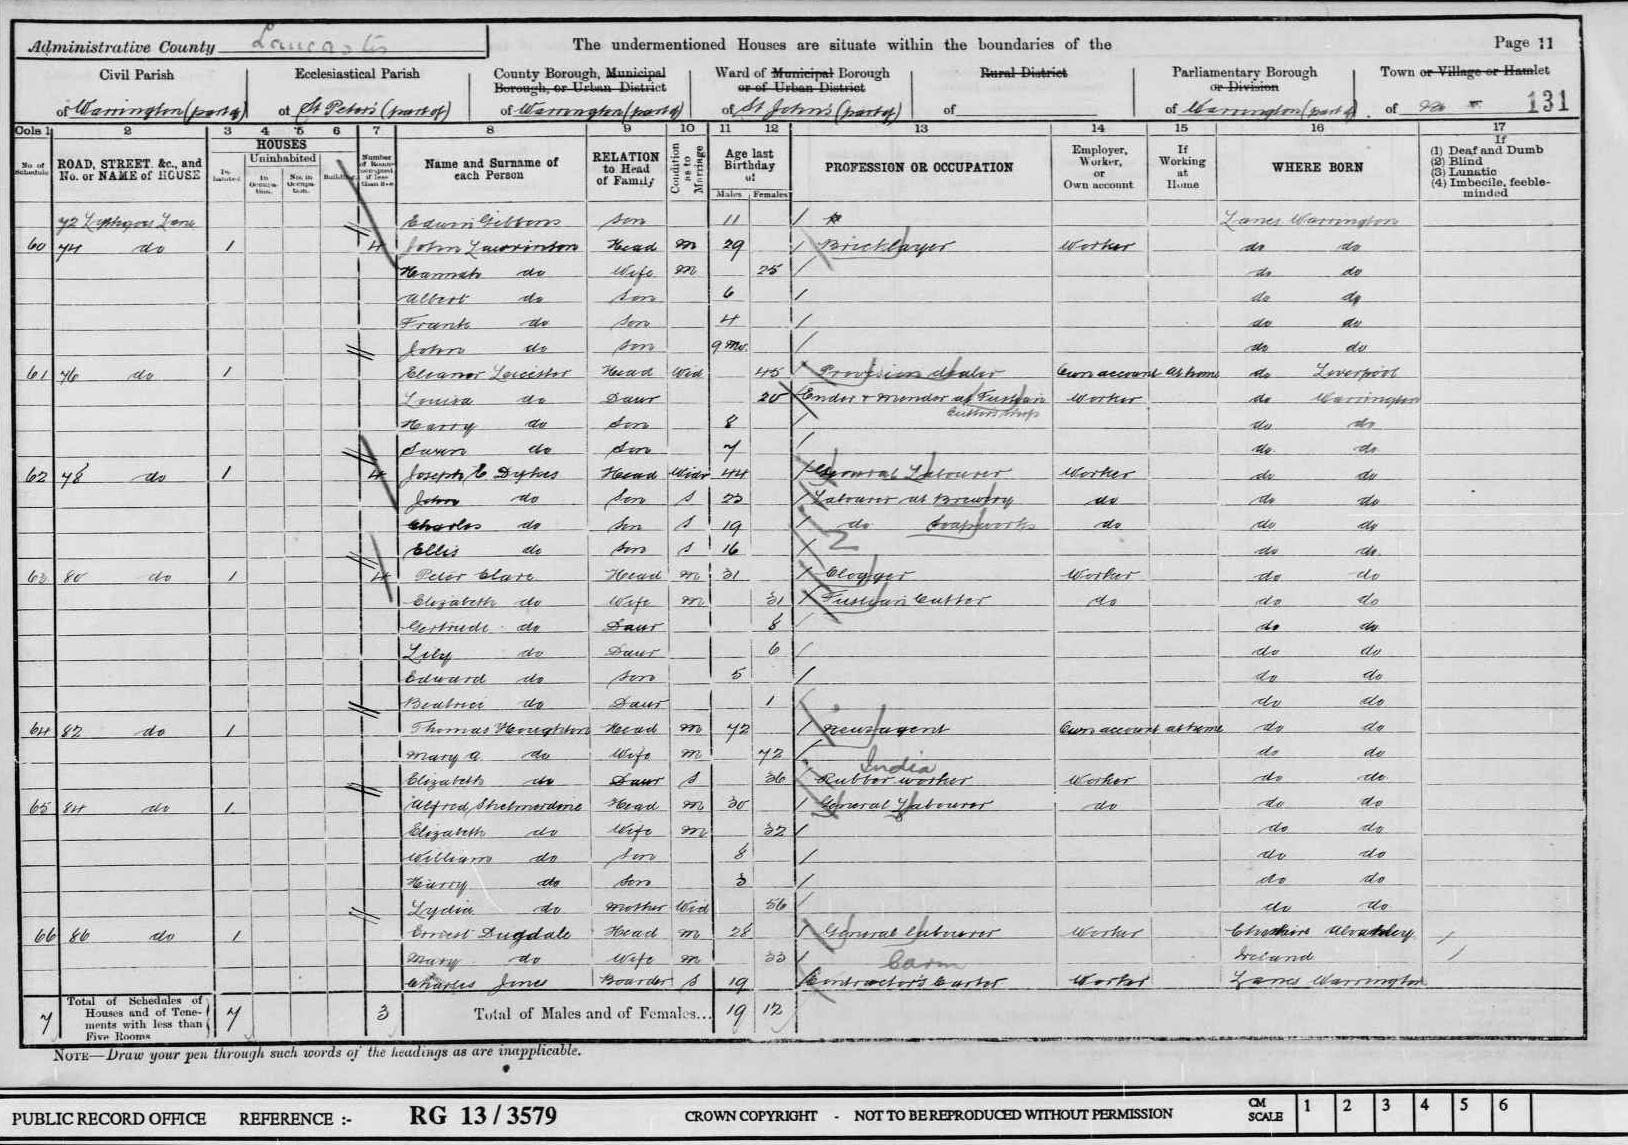 Administrative County Lancaster
The undermentioned Houses are situate within the boundaries of the
Page 11
Civil Parish
of Warrington (part of)
Ecclesiastical Parish
of St Peter's (part of)
County Borough, Municipal
Borough, or Urban District
of Warrington (part of)
Ward of Municipal Borough
or of Urban District
of St John's (part of)
Rural District
of
Parliamentary Borough
or Division
of Warrington (part of)
Town or Village or Hamlet
of
131
Cols 1 2 3 4 5 6 7 8 9 10 11 12 13 14 15 16 17
No of Schedule
ROAD, STREET, &c., and No. or NAME of HOUSE
HOUSES
Inhabited
Uninhabited
In Occupation.
Not in Occupation.
Building
Number of Rooms occupied if less than five
Name and Surname of each Person
RELATION to Head of Family
Condition as to Marriage
Age last Birthday of
Males Females
PROFESSION OR OCCUPATION
Employer, Worker, or Own account
If Working at Home
WHERE BORN
If
(1) Deaf and Dumb
(2) Blind
(3) Lunatic
(4) Imbecile, feeble-minded
72 Lythgoes Lane Edwin Gibbons Son 11 Lancs Warrington
60 74 do 1 4 John Lawrinson Head M 29 Bricklayer Worker do do
Hannah do Wife M 25 do do
Albert do Son 6 do do
Frank do Son 4 do do
John do Son 9 mo. do do
61 76 do 1 Eleanor Leicester Head Wid 45 Provision dealer Own account At home do Liverpool
Louisa do Daur 20 Ender & Mender at Fustian Cutters Shop Worker do Warrington
Harry do Son 8 do do
do Son 7 do do
62 78 do 1 4 Joseph C Dykes Head Widr 44 General Labourer Worker do do
John do Son S 23 Labourer at Brewery do do do
Charles do Son S 19 do Soapworks do do do
Ellis do Son S 16 do do
63 80 do 1 4 Peter Clare Head M 31 Clogger Worker do do
Elizabeth do Wife M 31 Fustian Cutter do do do
Gertrude do Daur 8 do do
Lily do Daur 6 do do
Edward do Son 5 do do
Beatrice do Daur 1 do do
64 82 do 1 Thomas Houghton Head M 72 Newsagent Own account at home do do
Mary A do Wife M 72 do do
India
Elizabeth do Daur S 36 Rubber worker Worker do do
65 84 do 1 Alfred Shelmerdine Head M 30 General Labourer do do do
Elizabeth do Wife M 32 do do
William do Son 8 do do
Harry do Son 3 do do
Lydia do Mother Wid 56 do do
66 86 do 1 Ernest Dugdale Head M 28 General Labourer Worker Cheshire Alvanley
Mary do Wife M 33 Ireland
Carm
Charles Jones Boarder S 19 Contractor's Carter Worker Lancs Warrington
7 Total of Schedules of Houses and of Tenements with less than Five Rooms 7 3 Total of Males and of Females... 19 12
NOTE—Draw your pen through such words of the headings as are inapplicable.
PUBLIC RECORD OFFICE REFERENCE :- RG 13 / 3579 CROWN COPYRIGHT - NOT TO BE REPRODUCED WITHOUT PERMISSION CM SCALE 1 2 3 4 5 6